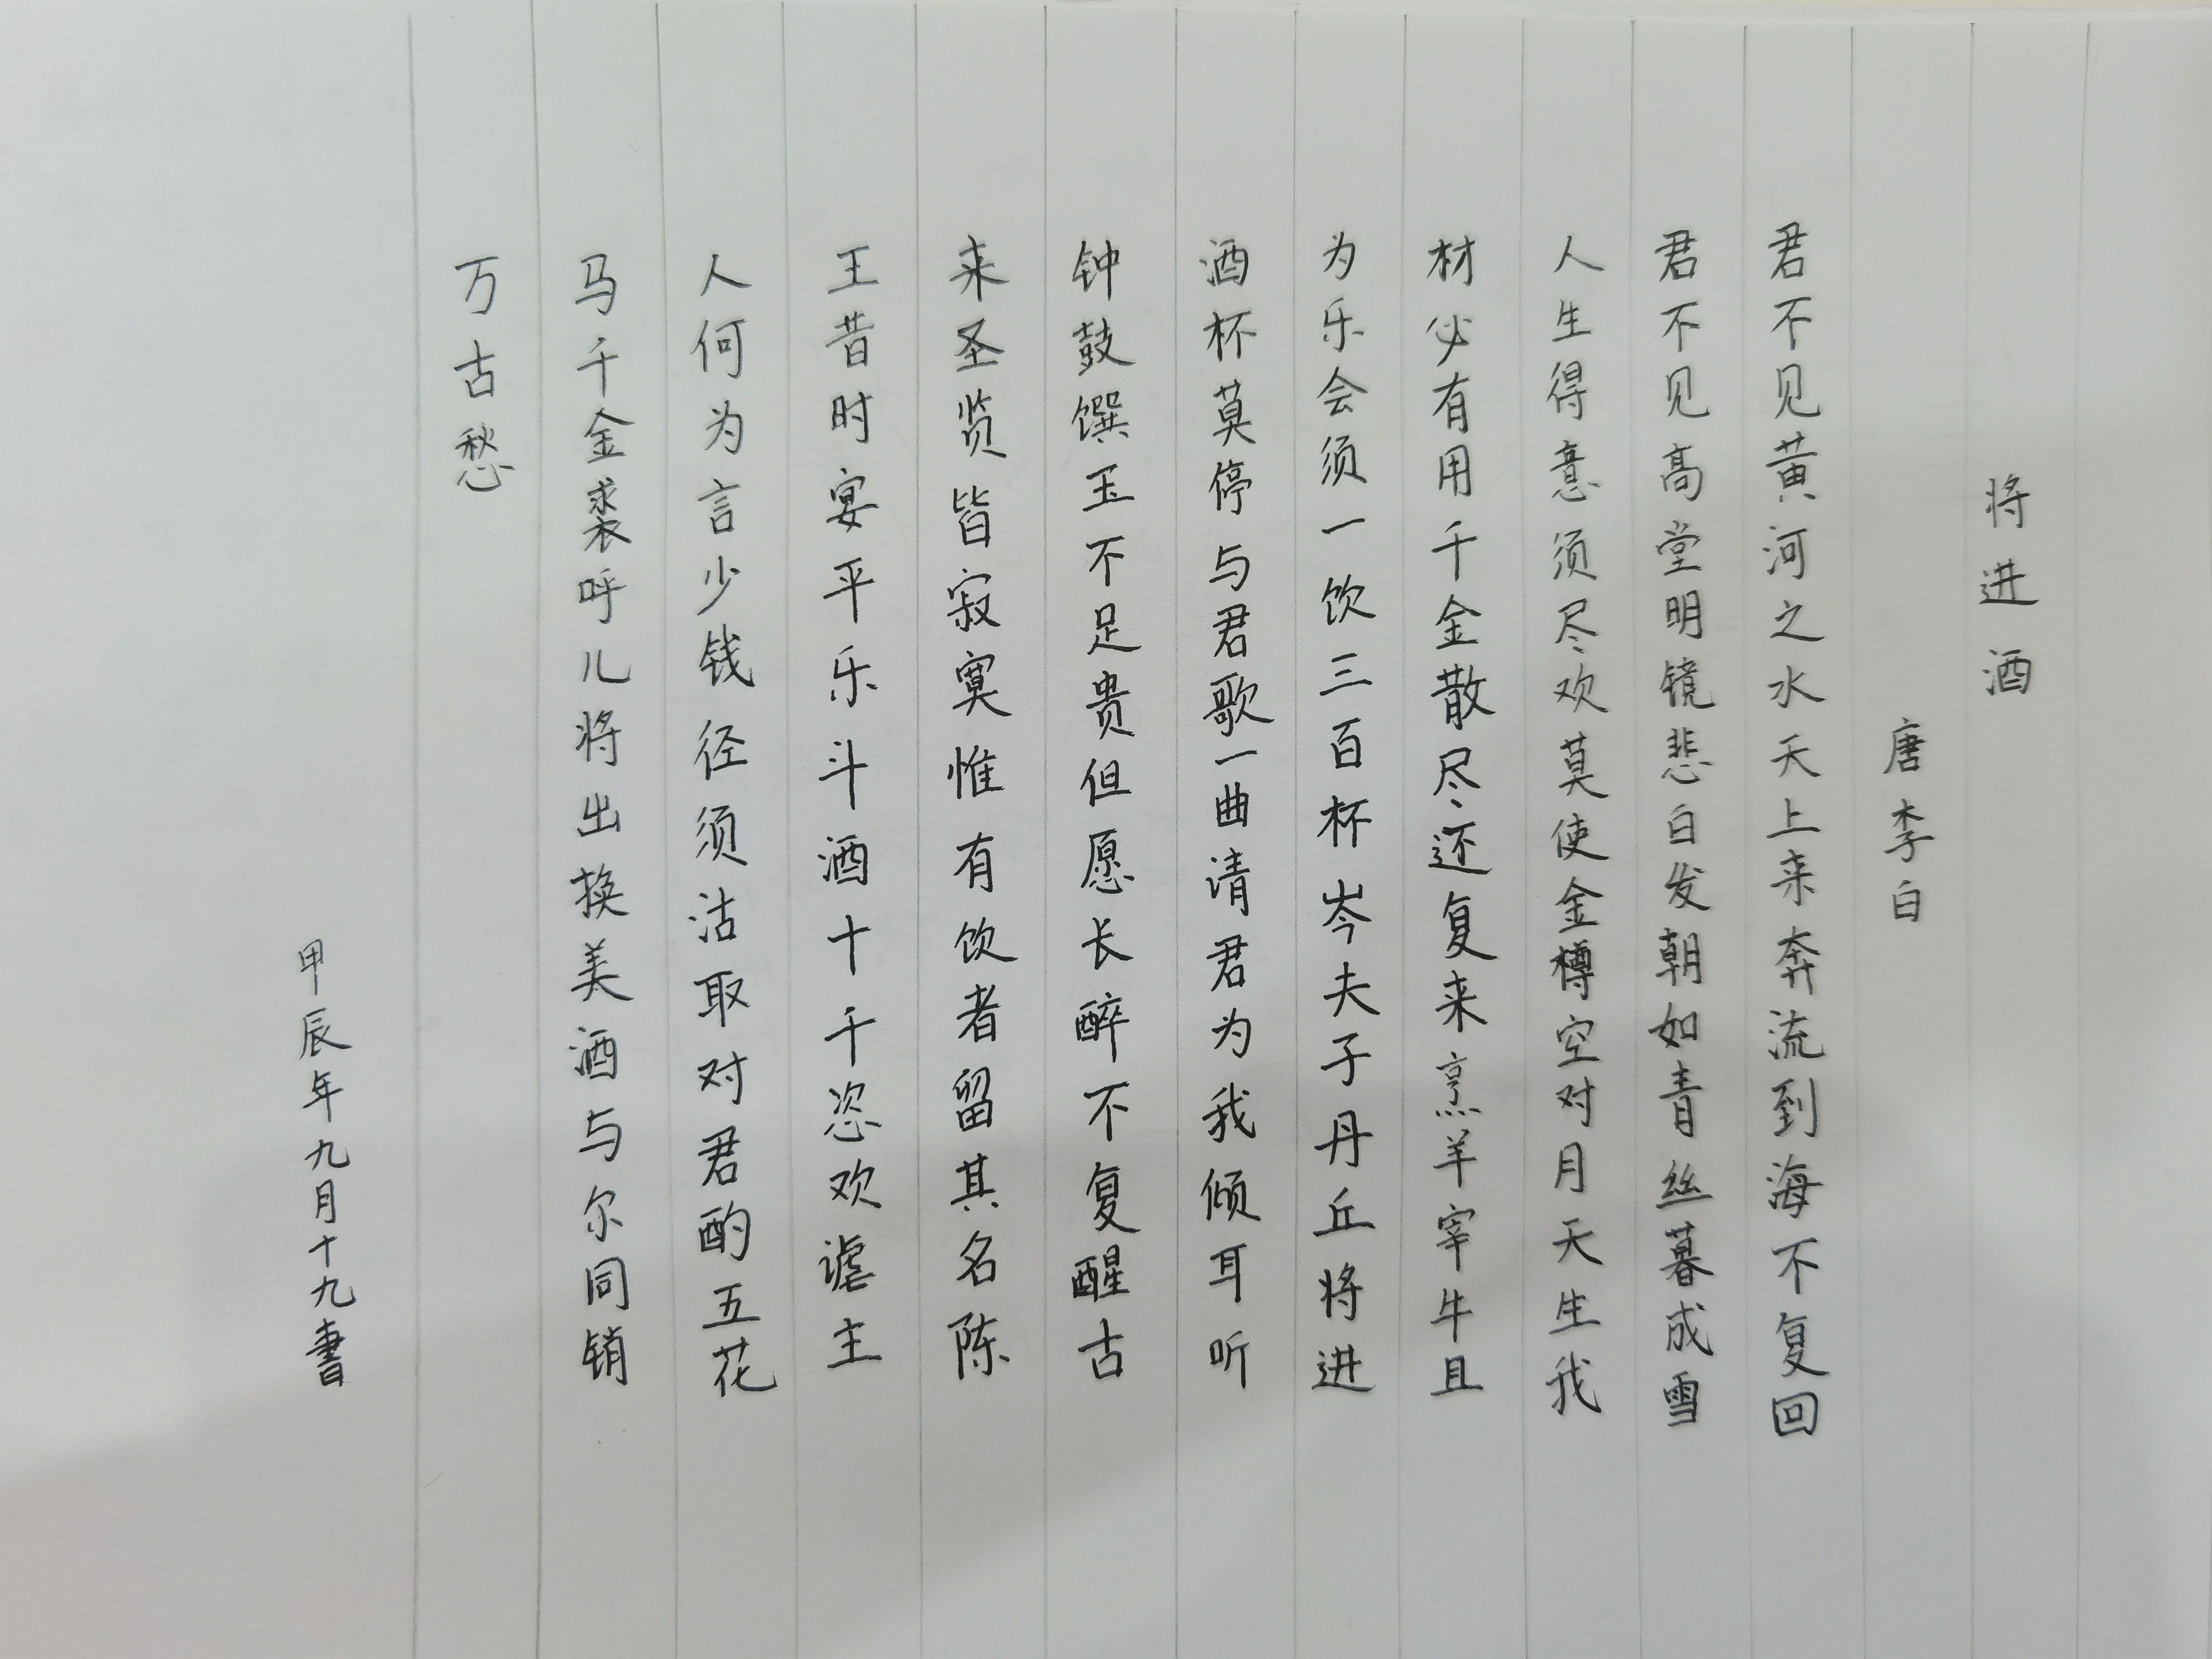 将进酒
唐李白
君不见黄河之水天上来奔流到海不复回
君不见高堂明镜悲白发朝如青丝暮成雪
人生得意须尽欢莫使金樽空对月天生我
材必有用千金散尽还复来烹羊宰牛且
为乐会须一饮三百杯岑夫子丹丘将进
酒杯莫停与君歌一曲请君为我倾耳听
钟鼓馔玉不足贵但愿长醉不复醒古
来圣贤皆寂寞惟有饮者留其名陈
王昔时宴平乐斗酒十千恣欢谑主
人何为言少钱径须沽取对君酌五花
马千金裘呼儿将出换美酒与尔同销
万古愁
甲辰年九月十九書